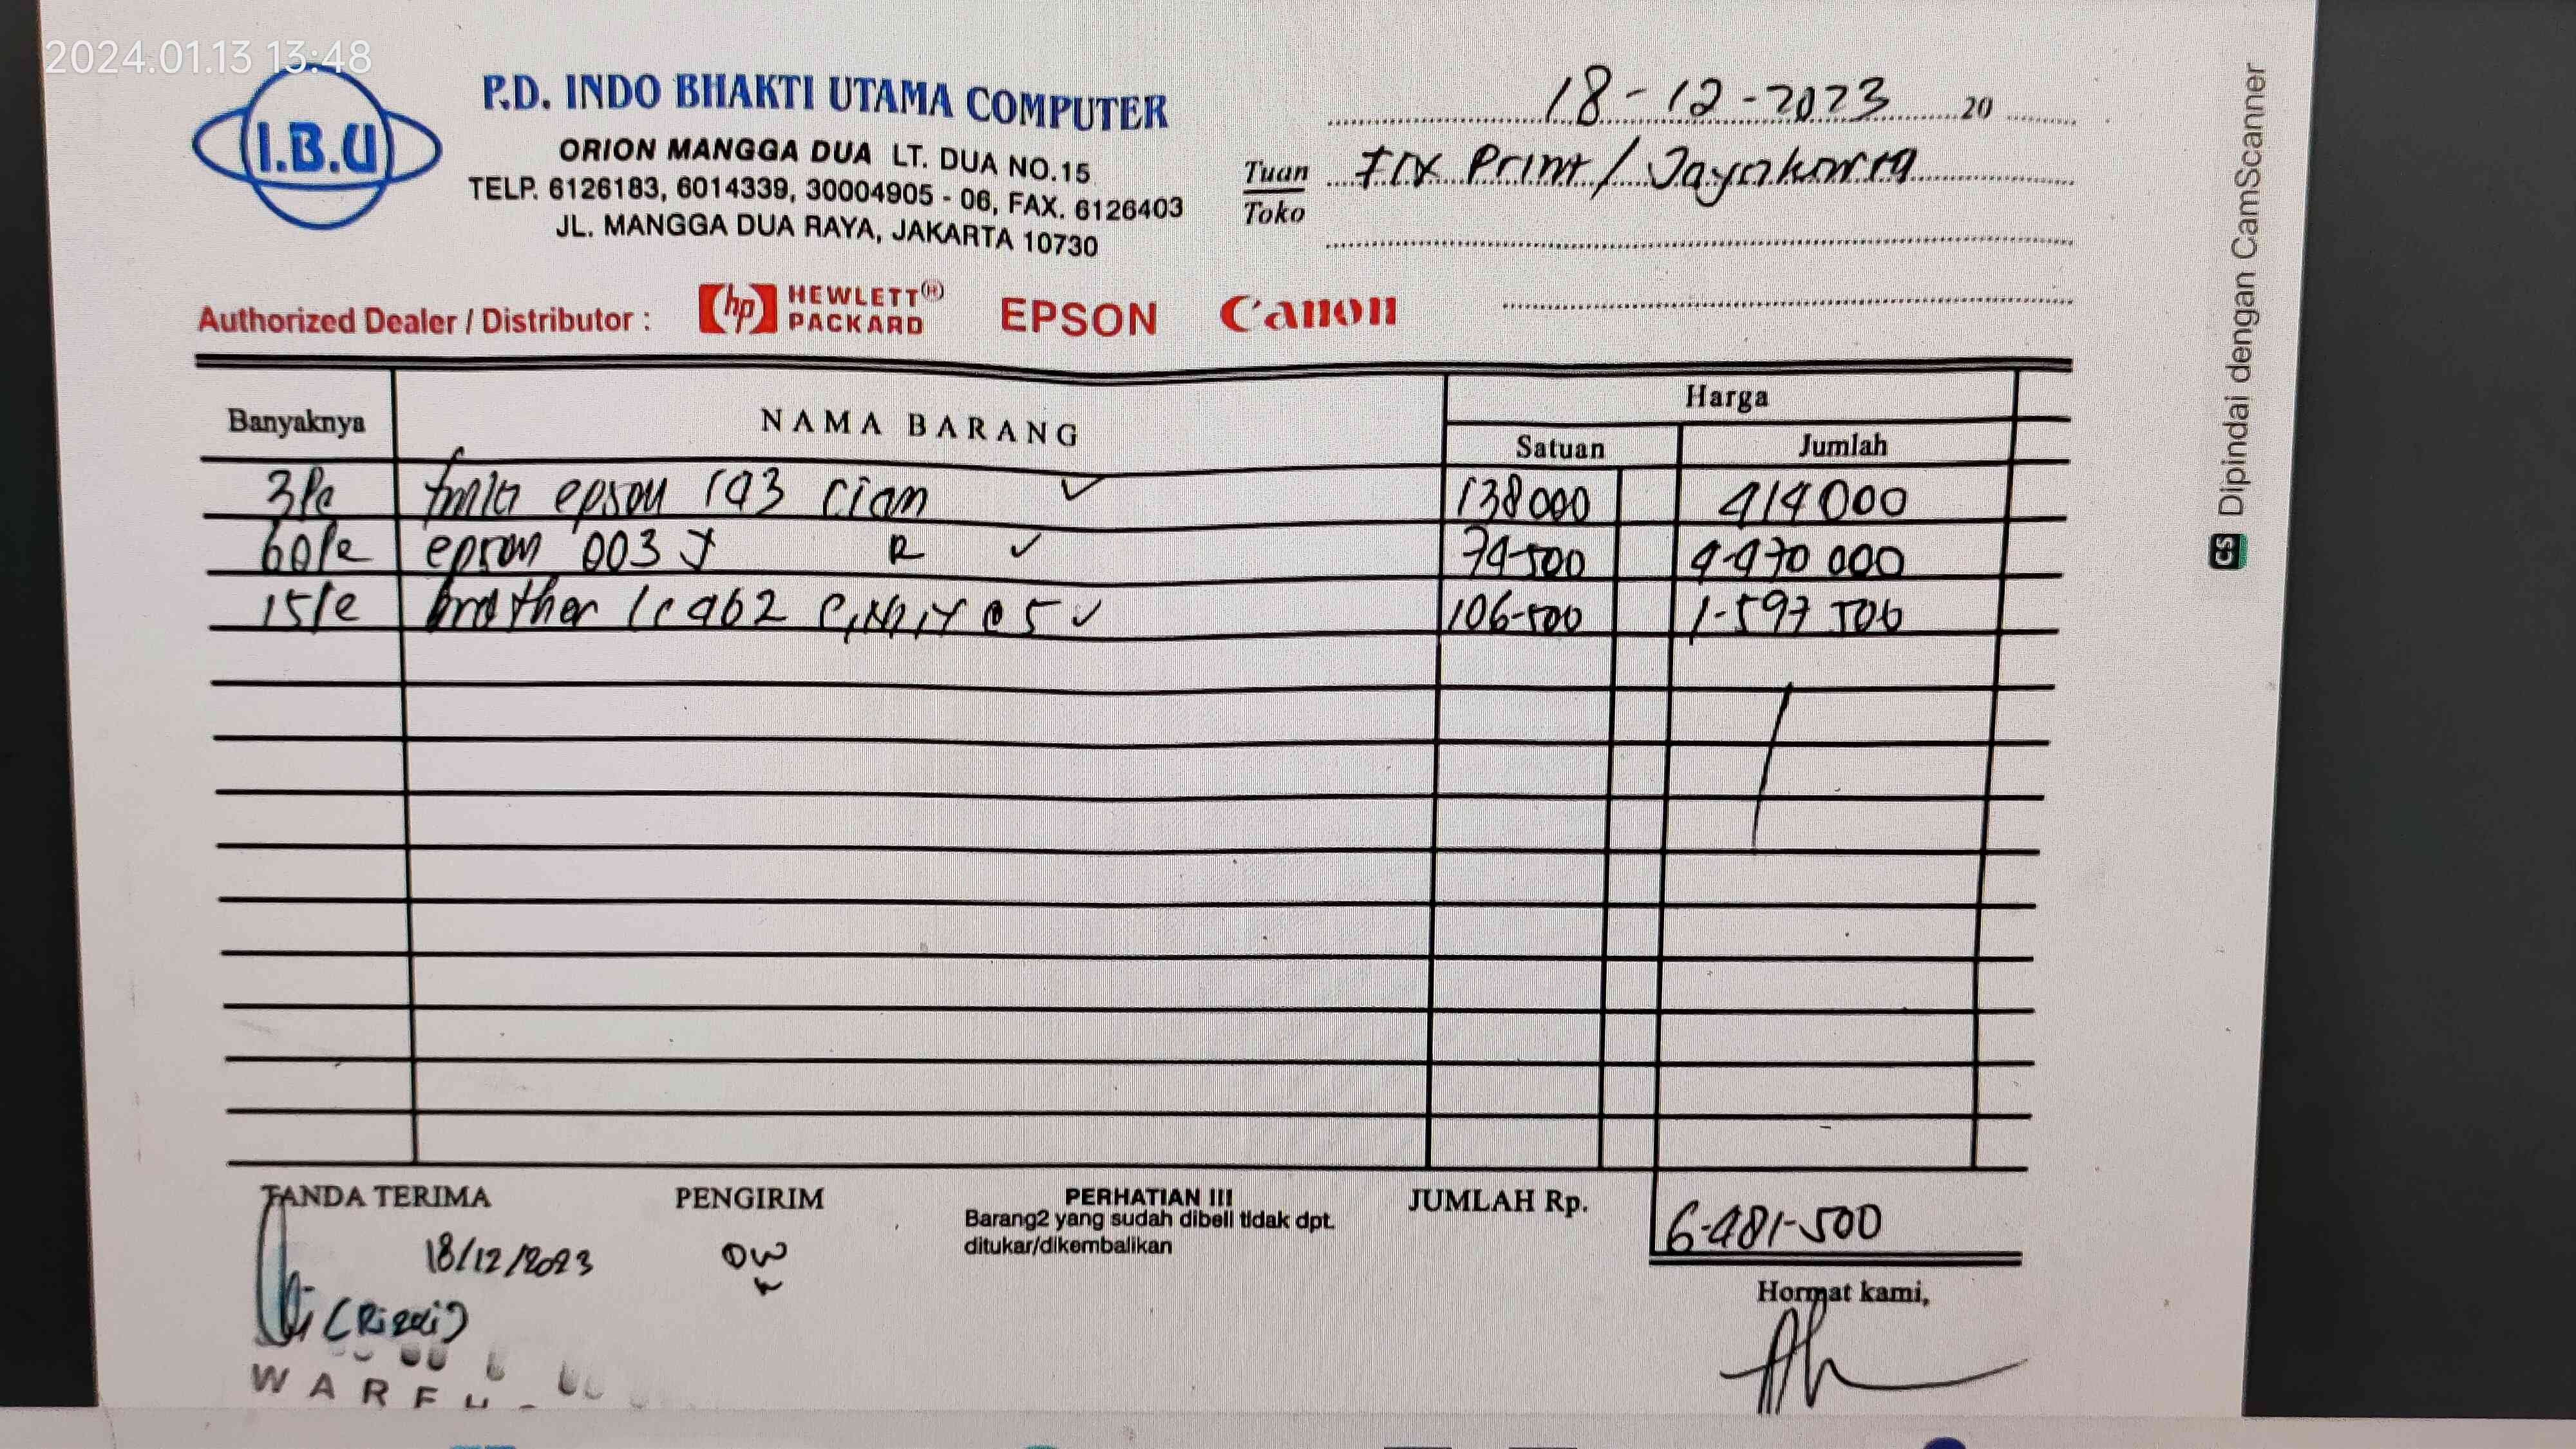 2024.01.13 13:48
I.B.U
P.D. INDO BHAKTI UTAMA COMPUTER
ORION MANGGA DUA LT. DUA NO.15
TELP. 6126183, 6014339, 30004905 - 06, FAX. 6126403
JL. MANGGA DUA RAYA, JAKARTA 10730
18-12-2023 20
Tuan Fix Print / Jayakarta
Toko
Authorized Dealer / Distributor : hp HEWLETT(H) PACKARD EPSON Canon
Banyaknya NAMA BARANG Harga
Satuan Jumlah
3Pc tinta epson 193 cian ✓ 138000 414000
60Pc epson 003 ✓ 74-500 4-470 000
15Pc brother lc 962 C,M,Y @ 5 ✓ 106-500 1-597 500
TANDA TERIMA PENGIRIM PERHATIAN !!! JUMLAH Rp. 6-481-500
Barang2 yang sudah dibeli tidak dpt.
ditukar/dikembalikan
18/12/2023
(Rizqi)
Hormat kami,
Dipindai dengan CamScanner
CS